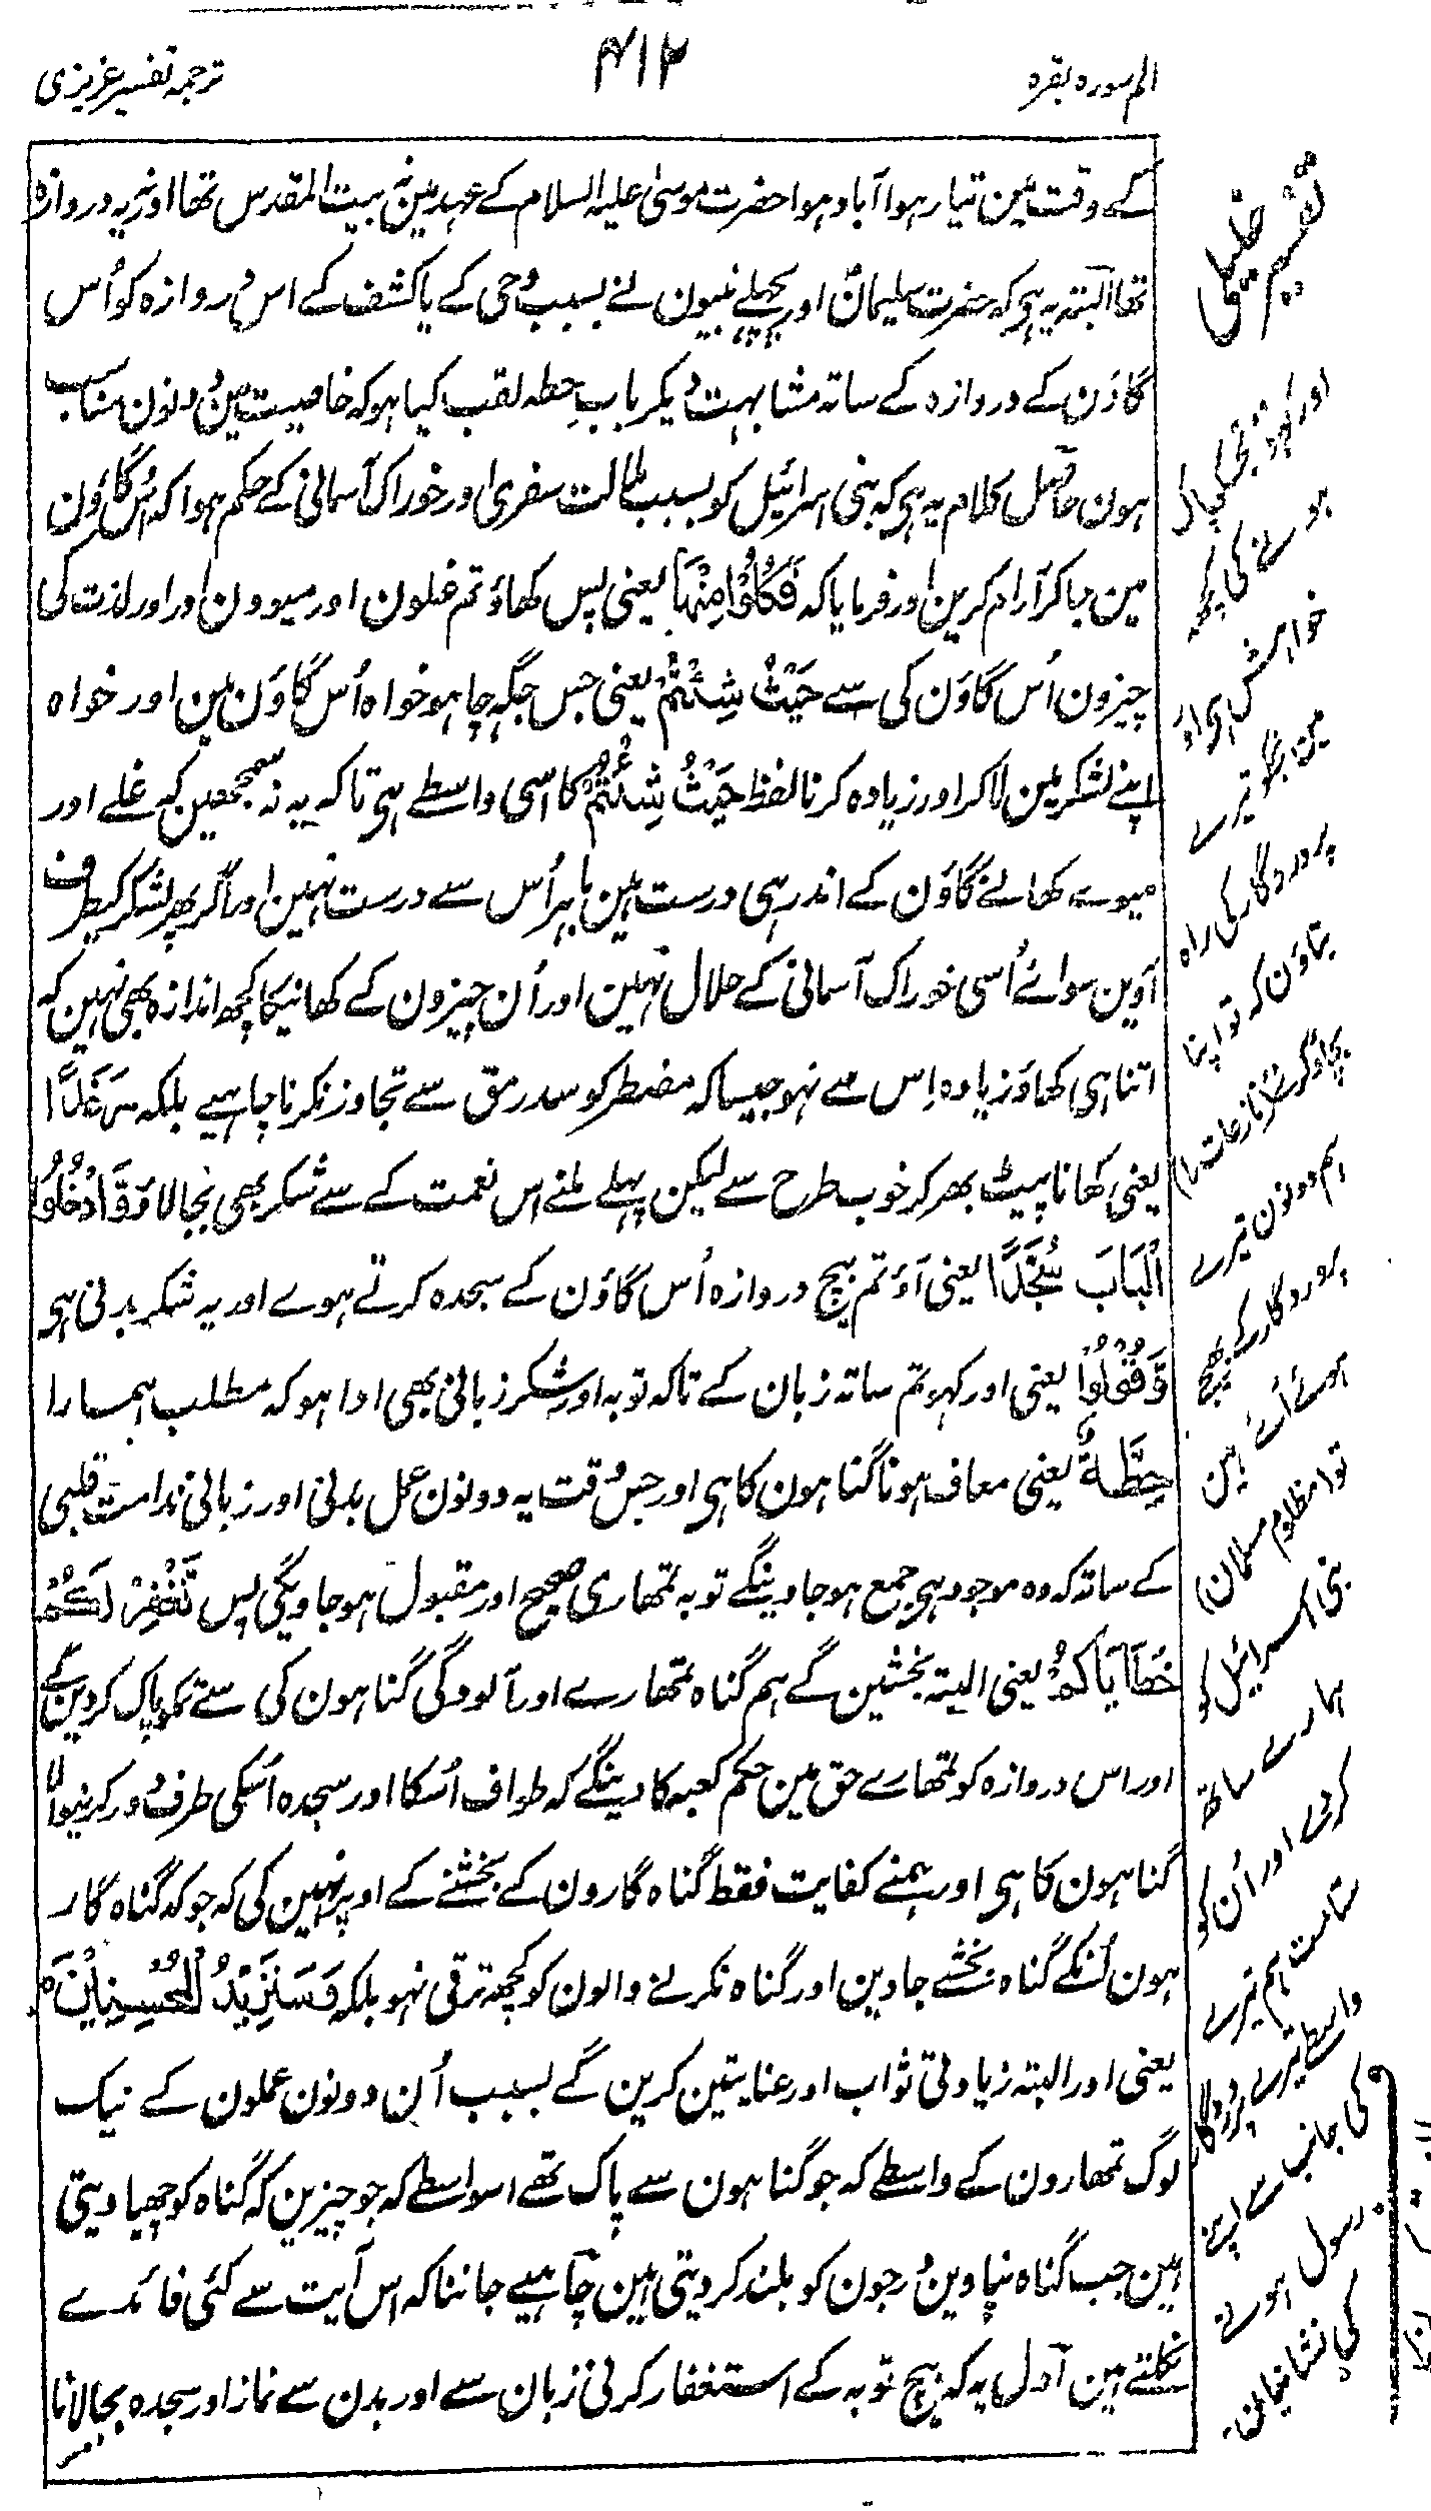 الم سورہ بقرہ
۴۱۲
ترجمہ تفسیر عزیزی
کے وقت مین تیار ہوا آباد ہوا حضرت موسیٰ علیہ السلام کے عہد مین نہ بیت المقدس تھا اور نہ یہ دروازہ
تھا البتہ یہ ہی کہ حضرت سلیمانؑ اور پچھلے نبیون نے بسبب وحی کے یا کشف کے اس دروازہ کو اُس
گاؤن کے دروازہ کے ساتہ مشابہت دیکر باب حِطہ لقب کیا ہو کہ خاصیت مین دونون مناسب
ہون حاصل کلام یہ ہی کہ بنی اسرائیل کو بسبب ملالت سفر کی اور خوراک آسمانی کے حکم ہوا کہ اُس گاؤن
مین جا کر آرام کرین اور فرمایا کہ فَكُلُوْا مِنْهَا یعنی پس کھاؤ تم غلون اور میوون اور اور لذت کی
چیزون اُس گاؤن کی سے حَيْثُ شِئْتُمْ یعنی جس جگہ چاہو خواہ اُس گاؤن مین اور خواہ
اپنے لشکر مین لا کر اور زیادہ کرنا لفظ حَيْثُ شِئْتُمْ کا اسی واسطے ہی تا کہ یہ نہ سمجھین کہ غلے اور
میوے کھانے گاؤن کے اندر ہی درست ہین باہر اُس سے درست نہین اور اگر پھر لشکر کیطرف
آوین سوائے اُسی خوراک آسمانی کے حلال نہین اور اُن چیزون کے کھانیکا کچھ اندازہ بھی نہین کہ
اتنا ہی کھاؤ زیادہ اِس سے نہو جیسا کہ مضطر کو سد رمق سے تجاوز نکرنا چاہیے بلکہ رَغَدًا
یعنی کھانا پیٹ بھر کر خوب طرح سے لیکن پہلے لنے اس نعمت کے سے شکر بھی بجا لاؤ وَّادْخُلُوا
الْبَابَ سُجَّدًا یعنی آؤ تم بیچ دروازہ اُس گاؤن کے سجدہ کرتے ہوے اور یہ شکر بدنی ہی
وَّقُوْلُوْا یعنی اور کہو تم ساتہ زبان کے تاکہ توبہ اور شکر زبانی بھی ادا ہو کہ مطلب ہمارا
حِطَّةٌ یعنی معاف ہونا گناہون کا ہی اور جس وقت یہ دونون عمل بدنی اور زبانی ندامت قلبی
کے ساتہ کہ وہ موجود ہی جمع ہو جاوینگے توبہ تمھاری صحیح اور مقبول ہو جاویگی پس نَّغْفِرْ لَكُمْ
خَطَايَاكُمْ یعنی البتہ بخشین گے ہم گناہ تمھارے اور آلودگی گناہون کی سے تمکو پاک کردین گے
اور اس دروازہ کو تمھارے حق مین حکم کعبہ کا دینگے کہ طواف اُسکا اور سجدہ اُسکی طرف دور کرنیوالا
گناہون کا ہی اور ہمنے کفایت فقط گناہ گارون کے بخشنے کے اوپر نہین کی کہ جو کہ گناہ گار
ہون اُنکے گناہ بخشے جاوین اور گناہ نکرنے والون کو کچھ ترقی نہو بلکہ وَسَنَزِيْدُ الْمُحْسِنِيْنَ
یعنی اور البتہ زیادتی ثواب اور عنایتین کرین گے بسبب اُن دونون عملون کے نیک
لوگ تمھارون کے واسطے کہ جو گناہون سے پاک تھے اسواسطے کہ جو چیزین کہ گناہ کو چھپا دیتی
ہین جب گناہ نپاوین درجون کو بلند کر دیتی ہین چاہیے جاننا کہ اس آیت سے کئی فائدے
نکلتے ہین اول یہ کہ بیچ توبہ کے استغفار کرنی زبان سے اور بدن سے نماز اور سجدہ بجالانا
تفسیر خلیلی
اور
ہونے کی کچھ
خواہش
مین تجھکو تیرے
پروردگار کی راہ
بتاؤن کہ تو اپنا
بچاؤ کرے (نازعات)
ہم دونون تیرے
پروردگار کے بھیجے
ہوئے آئے ہین
تو مظلوم مسلمان)
بنی اسرائیل کو
ہمارے ساتھ
کردے اور اُن کو
ستامت ہم تیرے
واسطے تیرے پروردگار
کی جانب سے اپنے
رسول ہونے
کی نشانیان